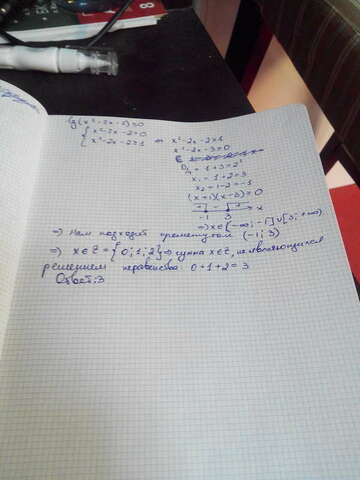 lg(x²-2x-2)≥0
{ x²-2x-2>0
x²-2x-2≥1 ⇔ x²-2x-2≥1
x²-2x-3≥0
D/4 = 1+3=2²
x₁ = 1+2=3
x₂ = 1-2=-1
(x+1)(x-3)≥0
-1 3 x
⇒ x∈(-∞;-1]∪[3;+∞)
⇒ Нам подходит промежуток (-1; 3)
⇒ x∈Z = {0; 1; 2} ⇒ сумма x∈Z, не являющихся
решением неравенства: 0+1+2=3
Ответ: 3